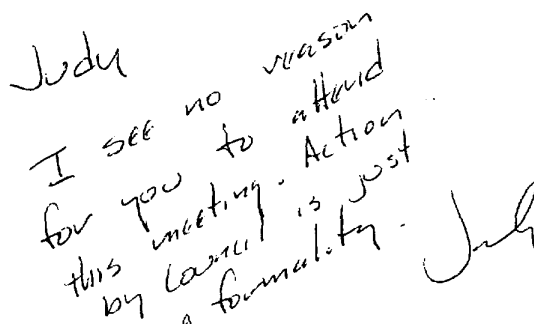 Judy
I see no reason
for you to attend
this meeting. Action
by Council is just
a formality.